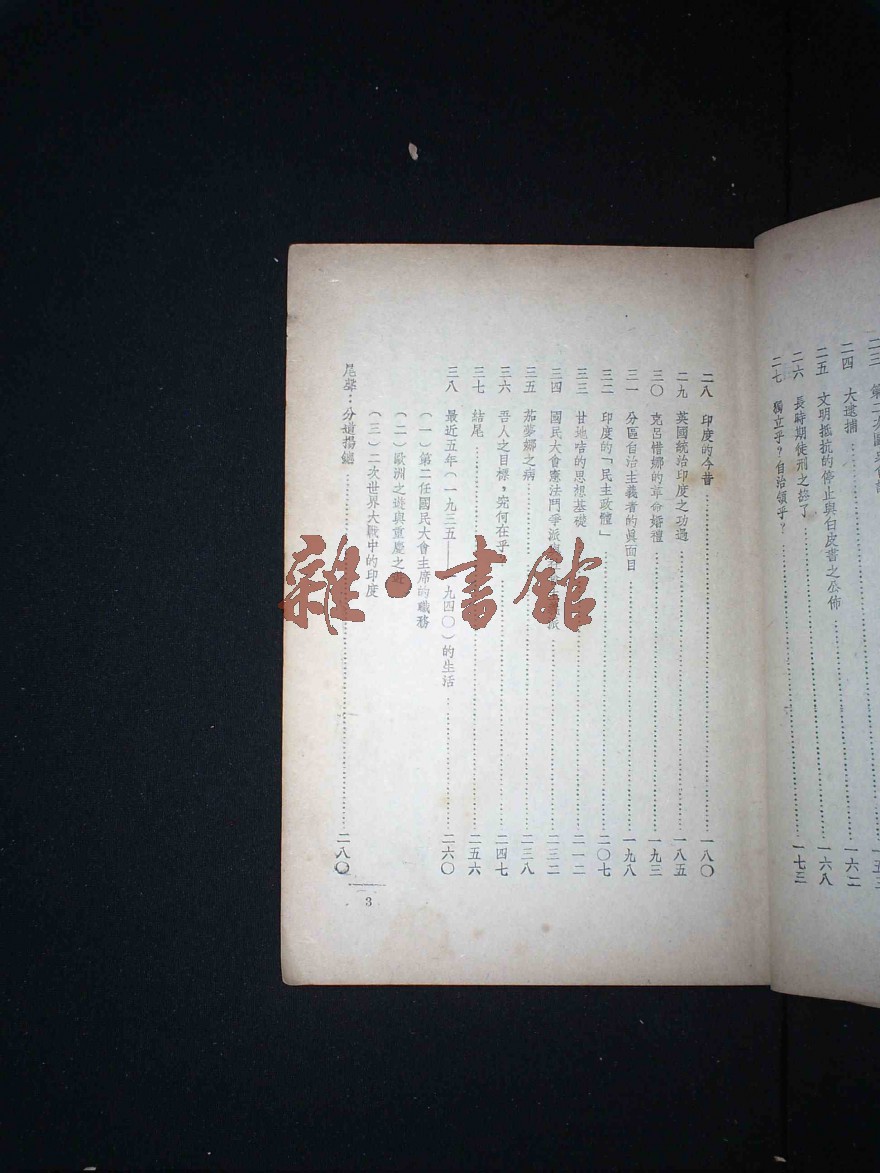 二四 大逮捕……一六二
二五 文明抵抗的停止與白皮書之公佈……一六八
二六 長時期徒刑之終了
二七 獨立乎？自治領乎？……一七三
二八 印度的今昔……一八〇
二九 英國統治印度之功過……一八五
三〇 克呂惜娜的革命婚禮……一九三
三一 分區自治主義者的眞面目……一九八
三二 印度的「民主政體」……二〇七
三三 甘地咭的思想基礎……二一二
三四 國民大會憲法鬥爭派……二三二
三五 茄夢娜之病……二三八
三六 吾人之目標，究何在乎……二四七
三七 結尾……二五六
三八 最近五年（一九三五——一九四〇）的生活……二六〇
（一）第二任國民大會主席的職務
（二）歐洲之遊與重慶之遊
（三）二次世界大戰中的印度
尾聲：分道揚鑣……二八〇
3
雜·書館